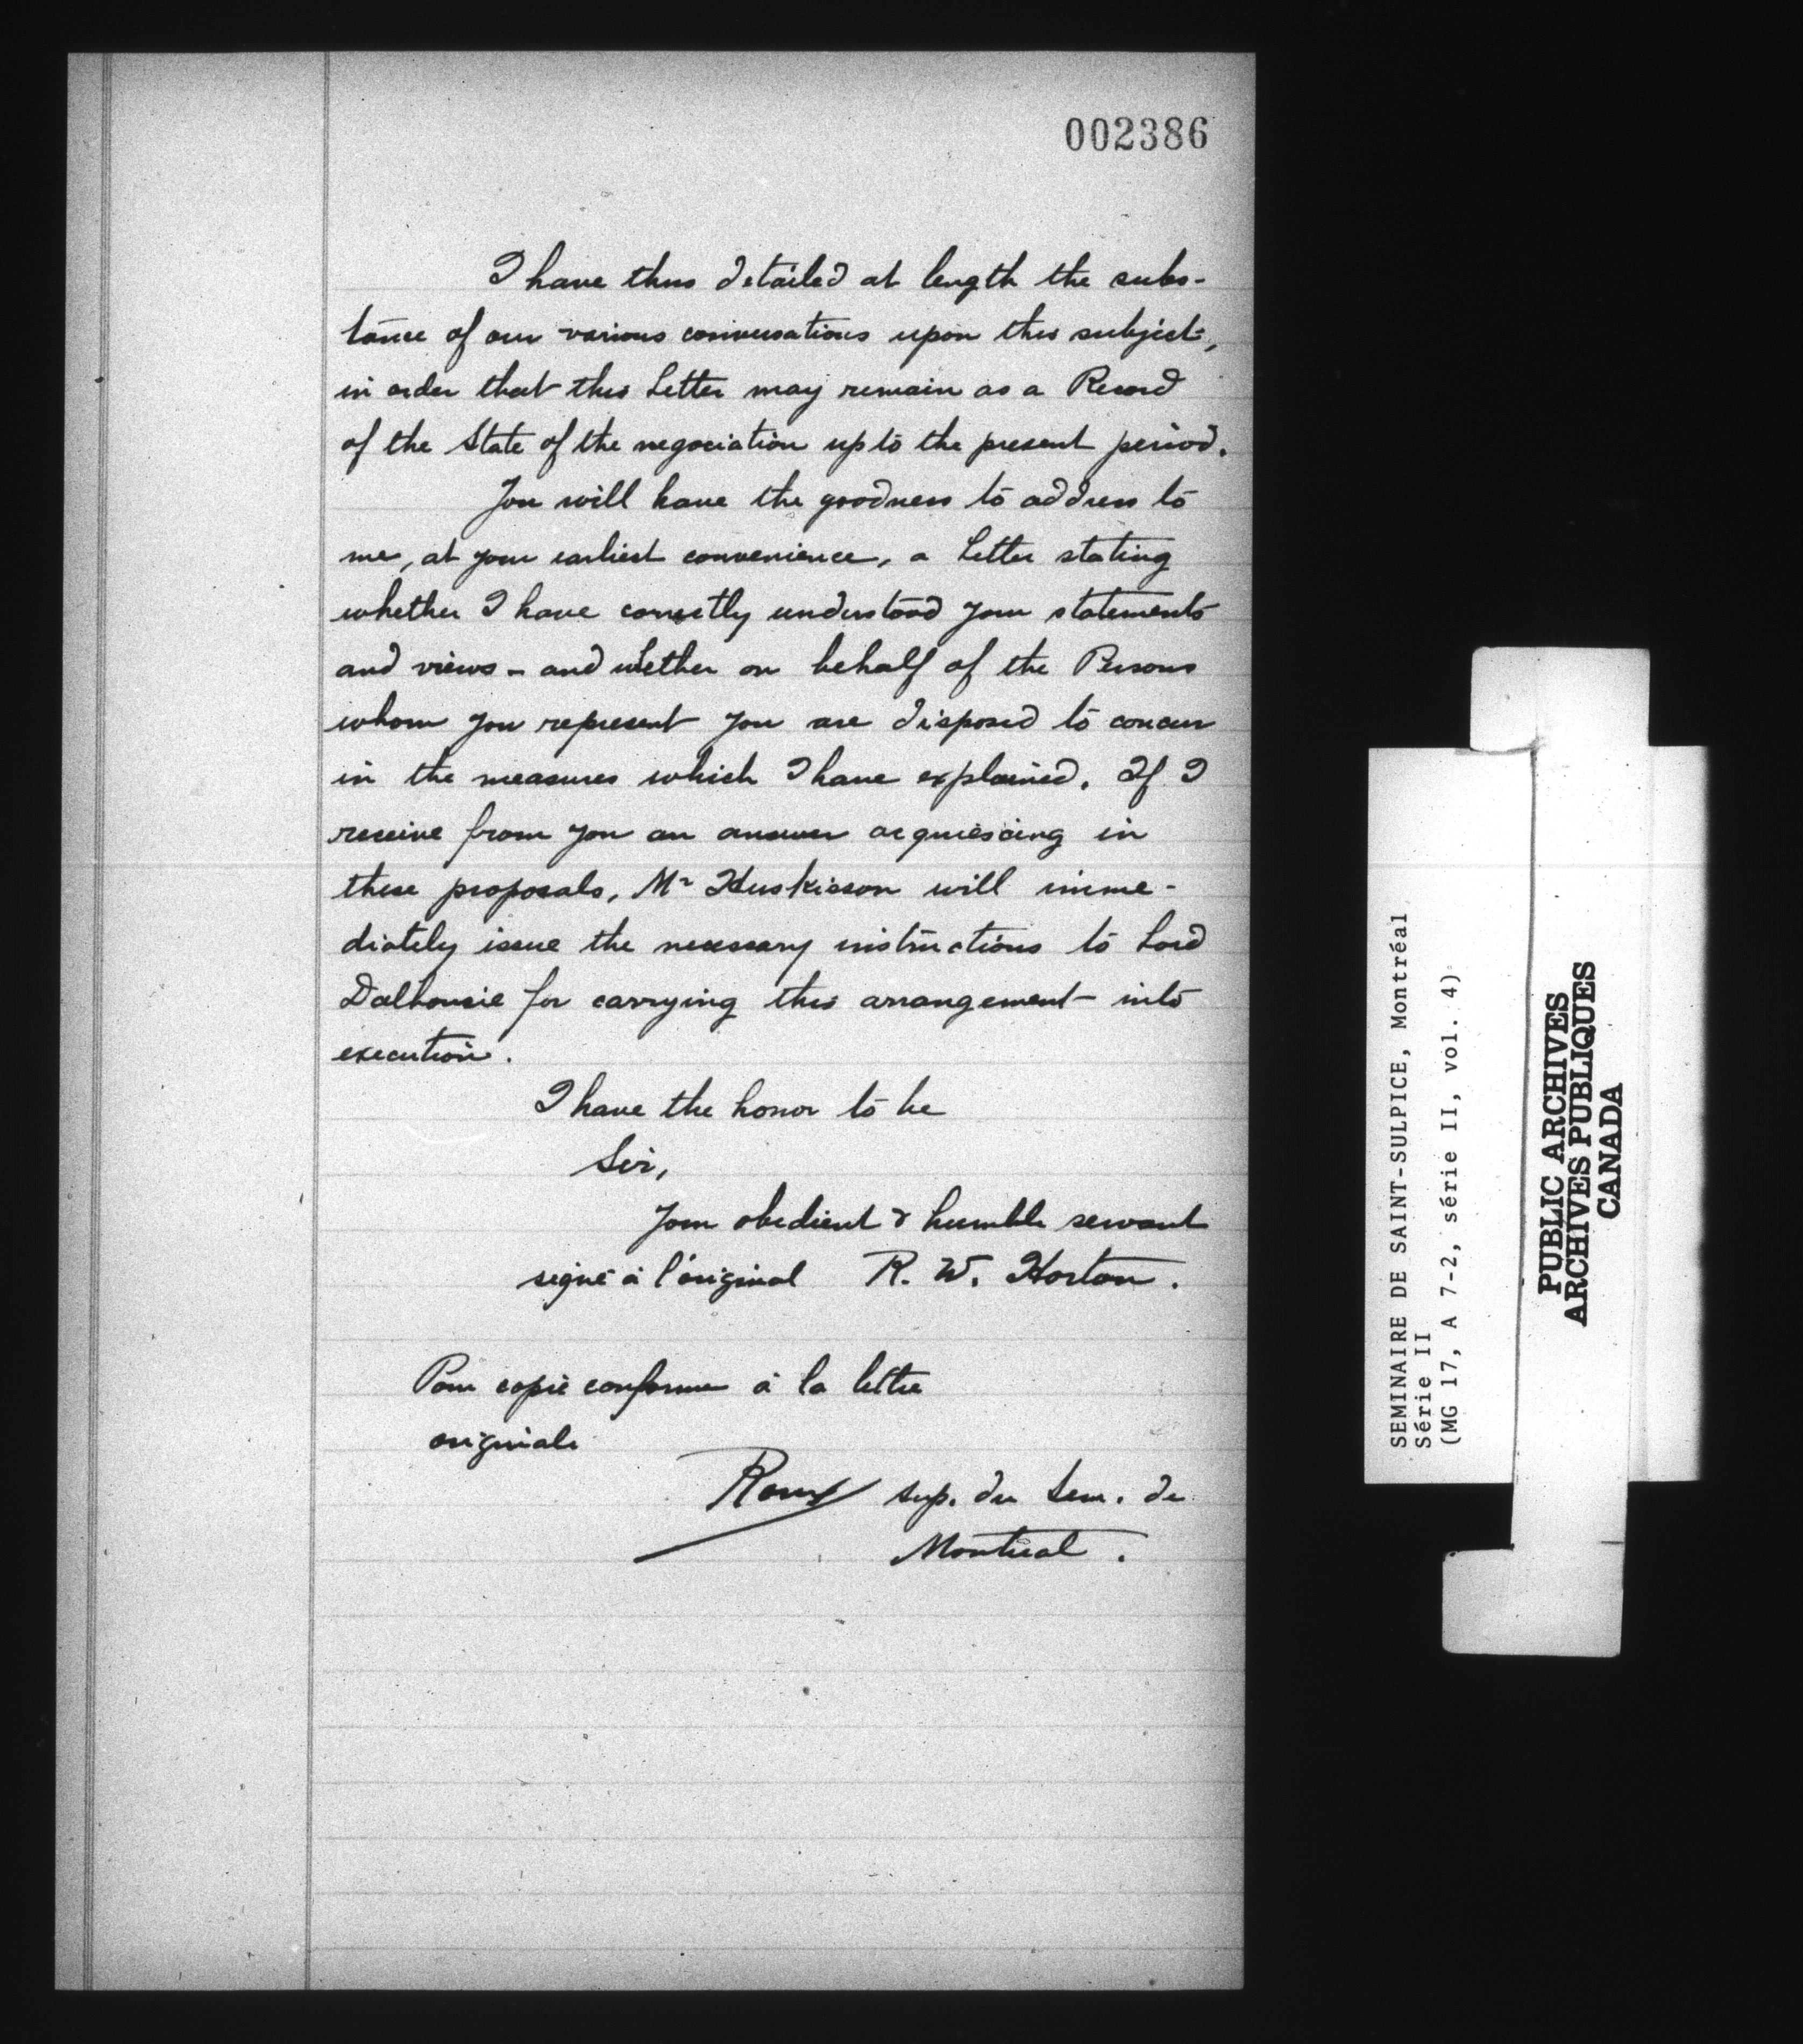 002386
I have thus detailed at length the subs-
tance of our various conversations upon this subject,
in order that this Letter may remain as a Record
of the State of the negociation up to the present period.
You will have the goodness to address to
me, at your earliest convenience, a Letter stating
whether I have correctly understood your statements
and views - and whether on behalf of the Persons
whom you represent you are disposed to concur
in the measures which I have explained. If I
receive from you an answer acquiescing in
these proposals, Mr Huskisson will imme-
diately issue the necessary instructions to Lord
Dalhousie for carrying this arrangement into
execution.
I have the honor to be
Sir,
Your obedient & humble servant
signé à l'original R. W. Horton.
Pour copie conforme à la lettre
originale
Roux sup. du Sem. de
Montreal.
SEMINAIRE DE SAINT-SULPICE, Montréal
Série II
(MG 17, A 7-2, série II, vol. 4)
PUBLIC ARCHIVES
ARCHIVES PUBLIQUES
CANADA